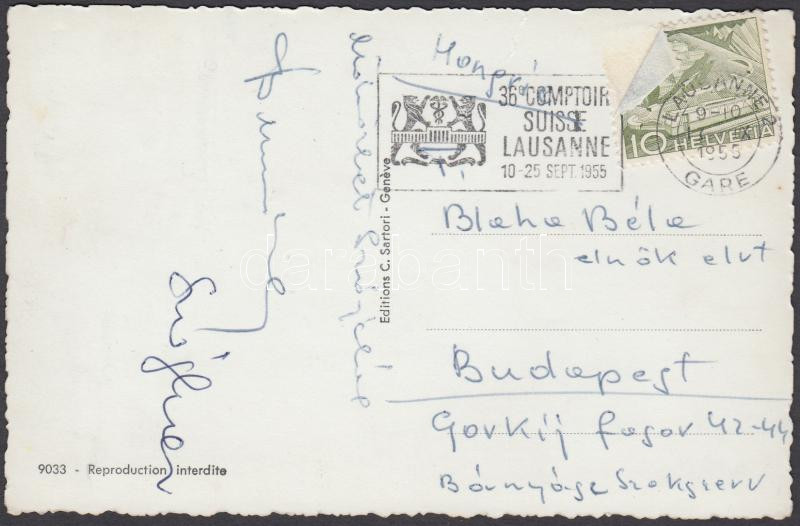 Hongrie
36e COMPTOIR
SUISSE
LAUSANNE
10-25 SEPT. 1955
LAUSANNE 2
19-10
IX
1955
GARE
10 HELVETIA
T.
Blaha Béla
elnök elvt
Budapest
Gorkij fasor 42-44
Bányász Szakszerv
Editions C. Sartori - Genève
9033 - Reproduction interdite
darabanth